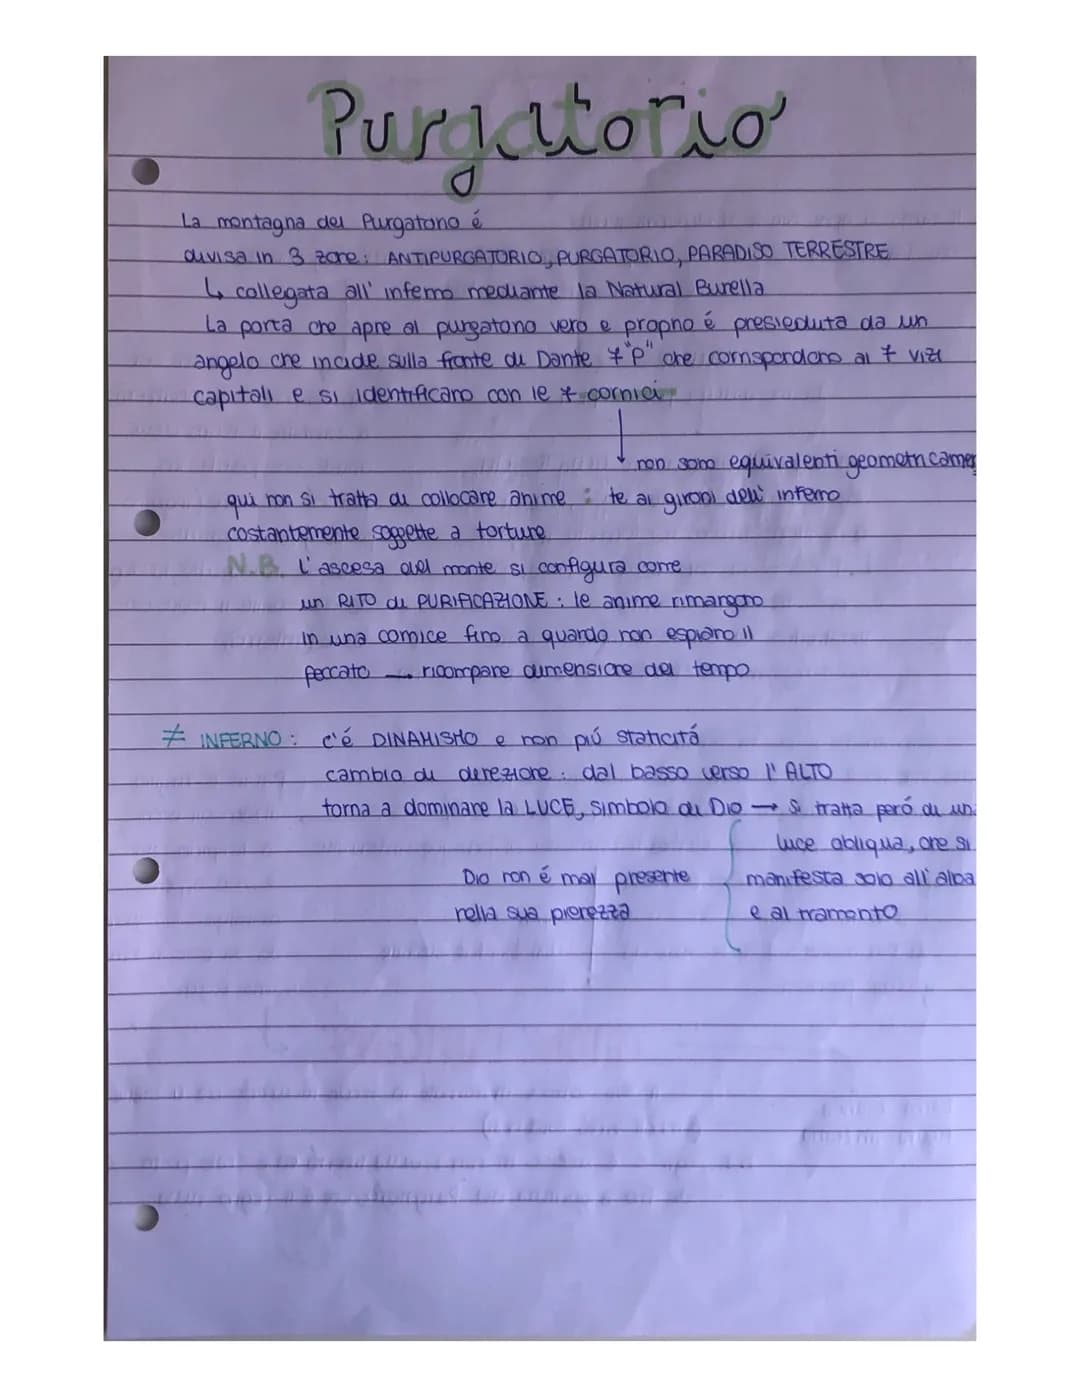 Purgatorio
La montagna del Purgatorio é
divisa in 3 zone: ANTIPURGATORIO, PURGATORIO, PARADISO TERRESTRE
↳ collegata all' inferno mediante la Natural Burella
La porta che apre al purgatorio vero e proprio é presieduta da un
angelo che incide sulla fronte di Dante 7 "P" che corrispondono ai 7 vizi
capitali e si identificano con le 7 cornici
↓ non sono equivalenti geometricamen
qui non si tratta di collocare anime : te ai gironi dell' inferno
costantemente soggette a torture
N.B. L'ascesa del monte si configura come
un RITO di PURIFICAZIONE : le anime rimangono
in una cornice fino a quando non espiano il
peccato → ricompare dimensione del tempo
≠ INFERNO : c'é DINAMISMO e non piú staticitá
cambio di derezione : dal basso verso l' ALTO
torna a dominare la LUCE, simbolo di Dio → Si tratta peró di un
luce obliqua, che si
Dio non é mai presente manifesta solo all' alba
nella sua pienezza e al tramonto